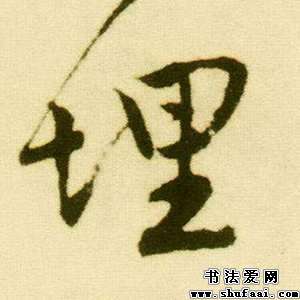 埋
书法爱网
www.shufaai.com